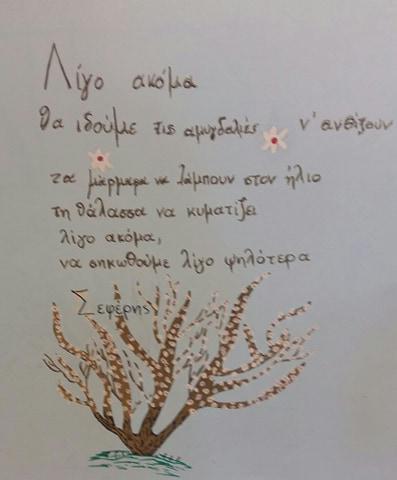 Λίγο ακόμα
θα ιδούμε τις αμυγδαλιές ν' ανθίζουν
τα μάρμαρα να λάμπουν στον ήλιο
τη θάλασσα να κυματίζει
λίγο ακόμα,
να σηκωθούμε λίγο ψηλότερα
Σεφέρης